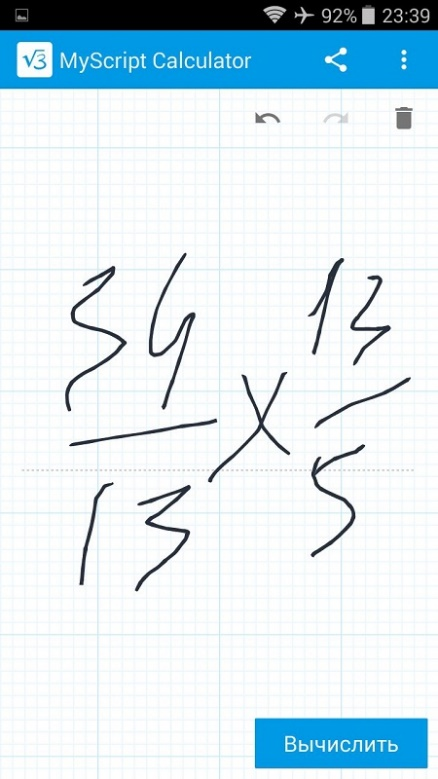 92% 23:39
√3 MyScript Calculator
34 13
X
13 5
Вычислить